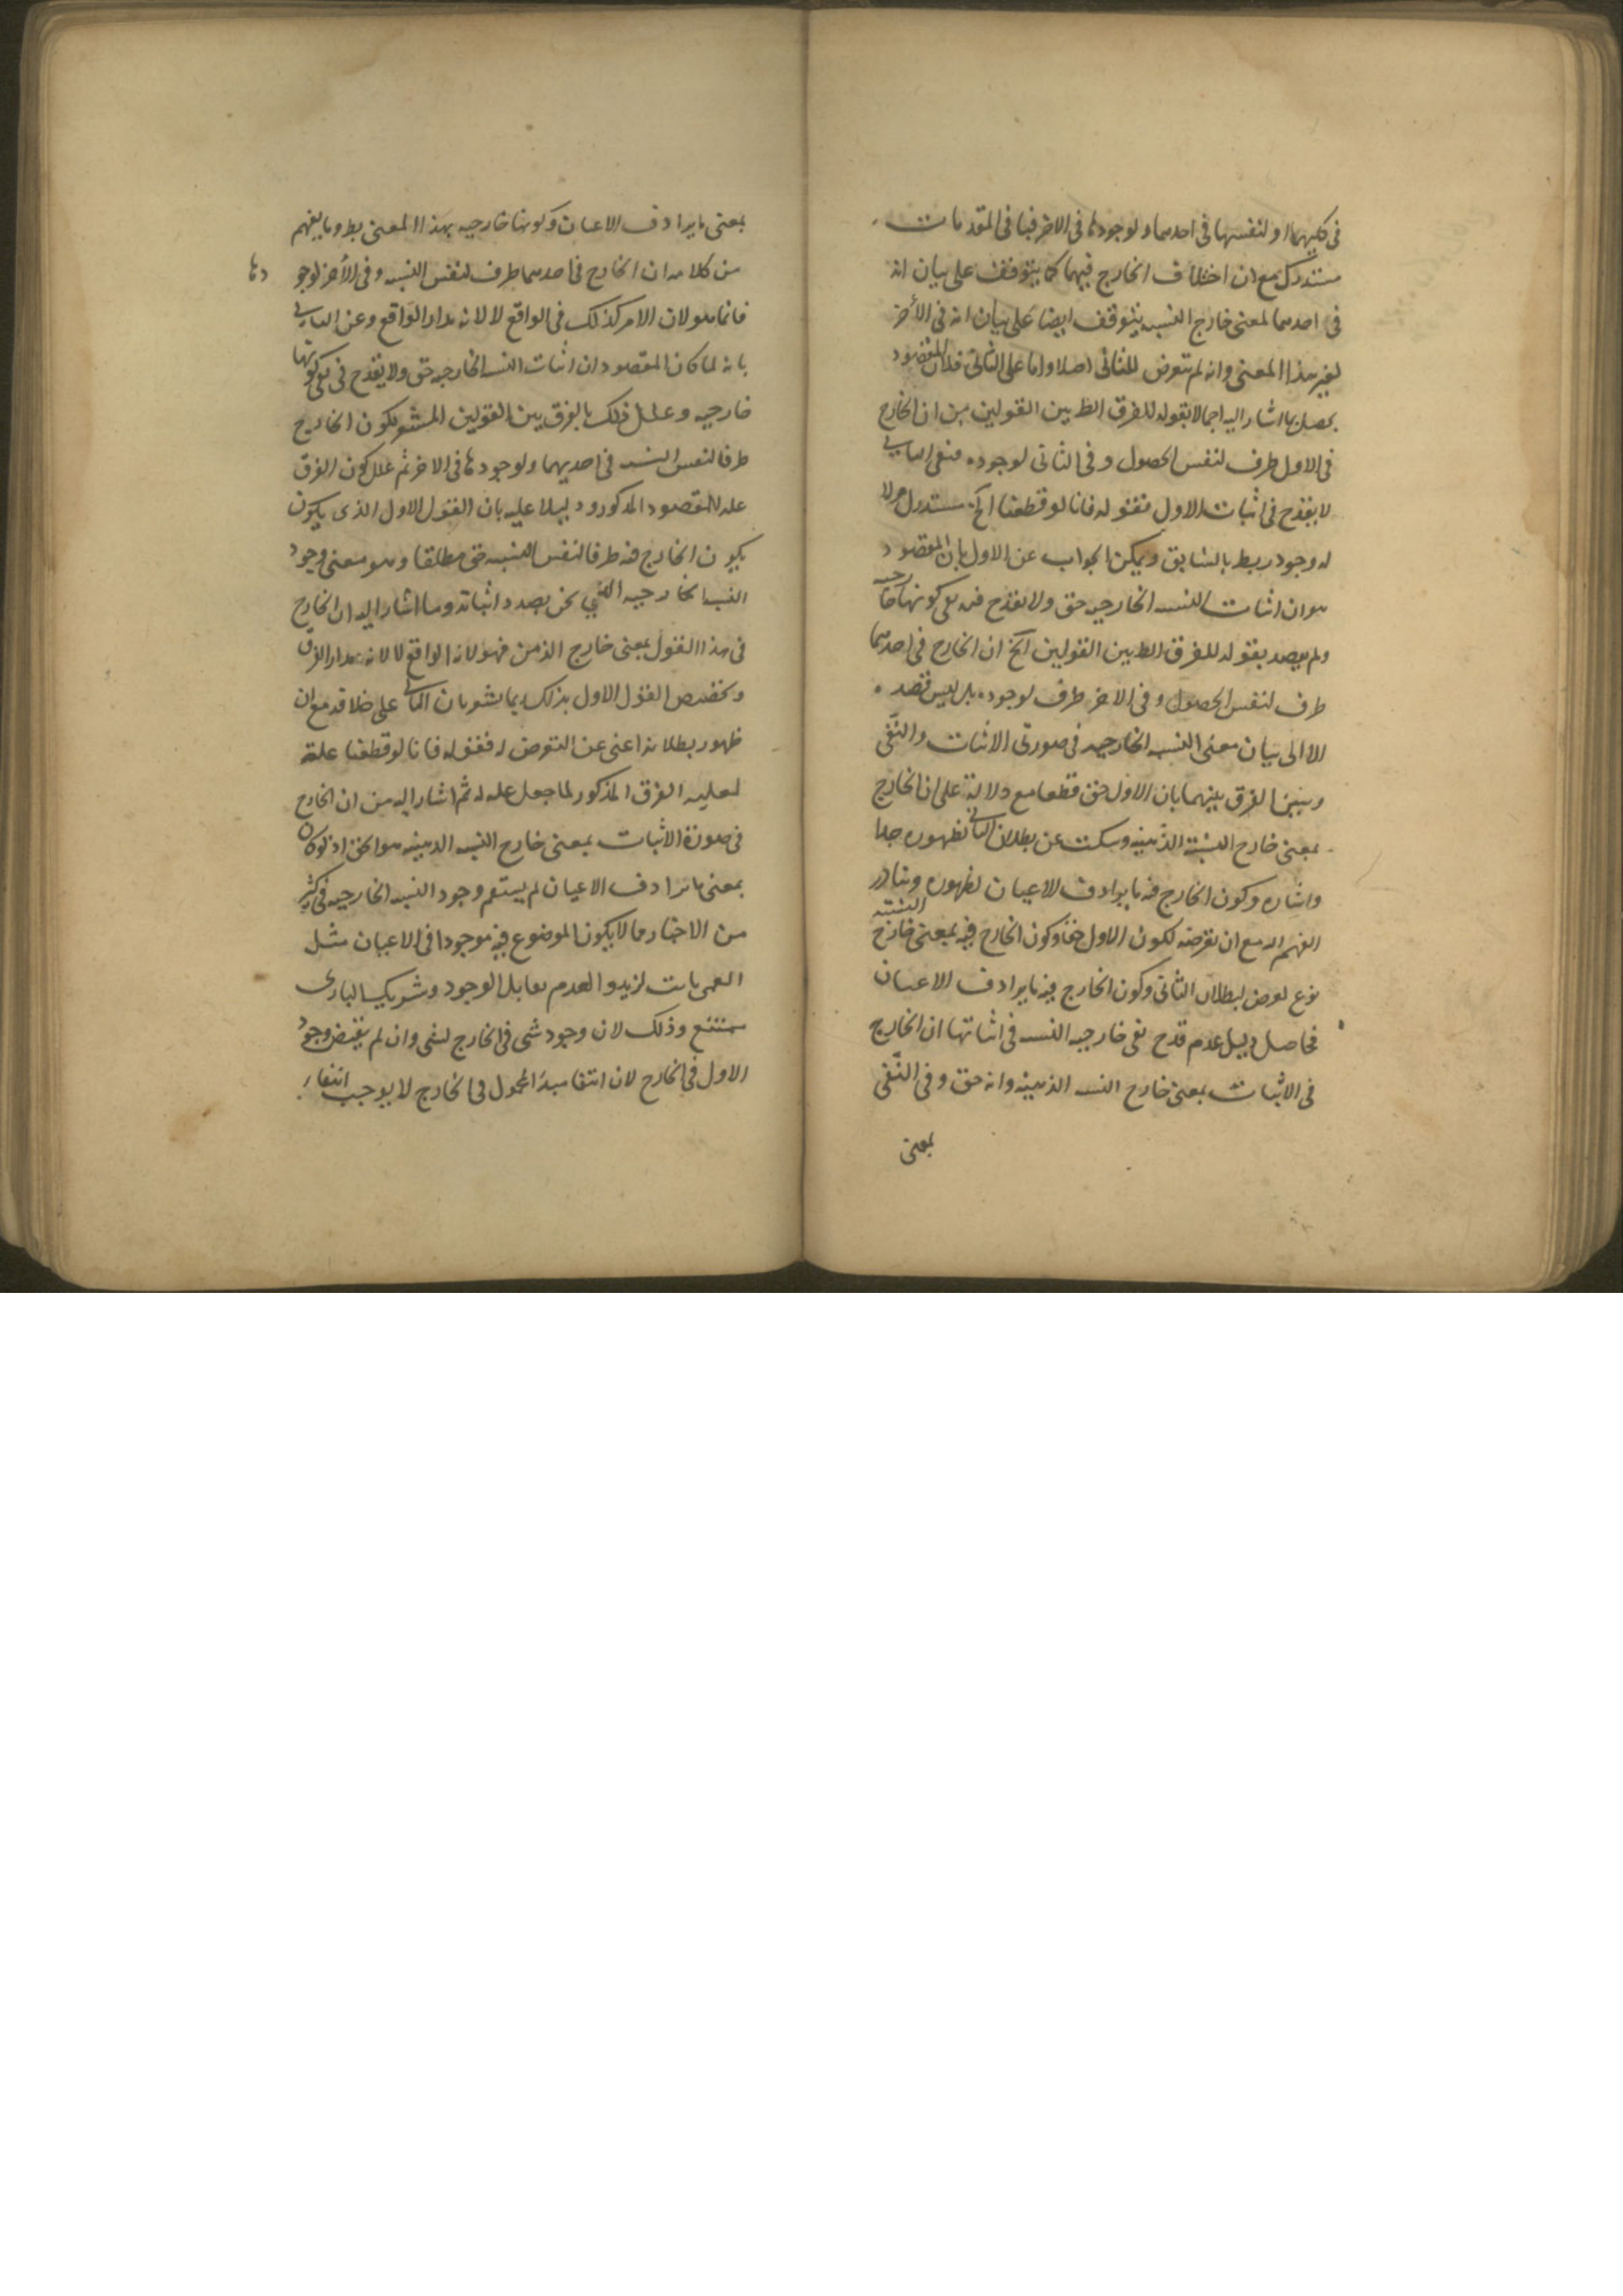 في كليهما او لنفسها في احدهما ولوجودها في الاخر فباقي المقدمات
مستدرك مع ان اختلاف الخارج فيهما كما يتوقف على بيان انه
في احدهما لمعنى خارج النسبه يتوقف ايضا على بيان انه في الأخر
لغير هذا المعنى وانه لم يتعرض للثاني اصلا واما على الثاني فلان المقصود
يحصل بما اشار اليه اجمالا بقوله للفرق الظ بين القولين من ان الخارج
في الاول ظرف لنفس الحصول وفي الثاني لوجوده فنفي الثاني
لا يقدح في اثبات الاول فقوله فانا لو قطعنا الخ مستدرك ولا
له وجود ربط بالسابق ويمكن الجواب عن الاول بان المقصود
هو ان اثبات النسبه الخارجيه حق ولا يقدح فيه نفي كونها خارجيه
ولم يقصد بقوله للفرق الظ بين القولين الخ ان الخارج في احدهما
ظرف لنفس الحصول وفي الاخر ظرف لوجوده بل ليس قصده
الا الى بيان معنى النسبه الخارجيه في صورتي الاثبات والنفي
وبين الفرق بينهما بان الاول حق قطعا مع دلالة على ان الخارج
بمعنى خارج النسبة الذهنيه وسكت عن بطلان الثاني لظهوره جدا
واشاره وكون الخارج فيه ما يرادف الاعيان لظهوره وتبادر
الفهم اليه مع ان تعرضه لكون الاول حقا وكون الخارج فيه بمعنى خارج النسبة
نوع تعرض لبطلان الثاني وكون الخارج فيه ما يرادف الاعيان
فحاصل دليل عدم قدح نفي خارجيه النسبه في اثباتها ان الخارج
في الاثبات بمعنى خارج النسبه الذهنيه وانه حق وفي النفي
بمعنى
بمعنى ما يرادف الاعيان وكونها خارجيه بهذا المعنى بط وما يفهم
من كلامه ان الخارج في احدهما ظرف لنفس النسبه وفي الأخر لوجودها
فانما هو لان الامر كذلك في الواقع لا لانه مدار الواقع وعن الثاني
بانه لما كان المقصود ان اثبات النسبه الخارجيه حق ولا يقدح في نفي كونها
خارجيه وعلل ذلك بالفرق بين القولين المشعر بكون الخارج
ظرفا لنفس النسبه في احديهما ولوجودها في الاخر ثم علل كون الفرق
عله للمقصود المذكور ودليلا عليه بان القول الاول الذي يكون
يكون الخارج فيه ظرفا لنفس النسبه حق مطلقا وهو معنى وجود
النسبه الخارجيه التي نحن بصدد اثباته وما اشار اليه ان الخارج
في هذا القول بمعنى خارج الذهن فهو لانه الواقع لا لانه مدار الفرق
وتخصيص القول الاول بذلك يما يشعر بان الثاني على خلافه مع ان
ظهور بطلانه اغنى عن التعرض له فقوله فانا لو قطعنا علة
لعليه الفرق المذكور لما جعل عله له ثم اشار اليه من ان الخارج
في صورة الاثبات بمعنى خارج النسبه الذهنيه هو الحق اذ لو كان
بمعنى ما يرادف الاعيان لم يستقم وجود النسبه الخارجيه في كثير
من الاخبار مما لا يكون الموضوع فيه موجودا في الاعيان مثل
العمى ثابت لزيد والعدم مقابل الوجود وشريك الباري
ممتنع وذلك لان وجود شي في الخارج لشي وان لم يقتض وجود
الاول في الخارج لان انتفا مبدأ المحمول في الخارج لا يوجب انتفاء